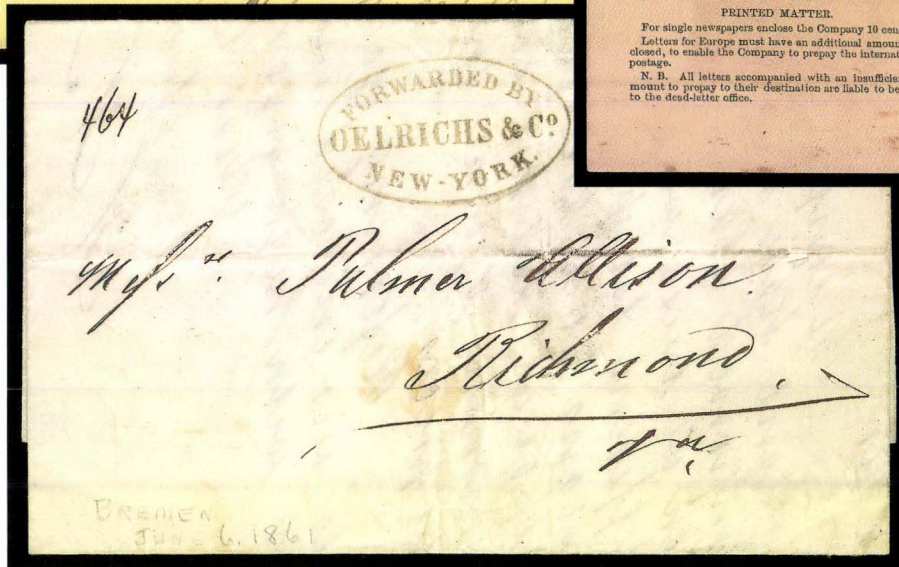 PRINTED MATTER.
For single newspapers enclose the Company 10 cen
Letters for Europe must have an additional amoun
closed, to enable the Company to prepay the internat
postage.
N. B. All letters accompanied with an insufficie
mount to prepay to their destination are liable to be
to the dead-letter office.
464
FORWARDED BY
OELRICHS & Co
NEW-YORK.
Messrs. Palmer Ellison
Richmond,
Va
BREMEN
JUNE 6, 1861